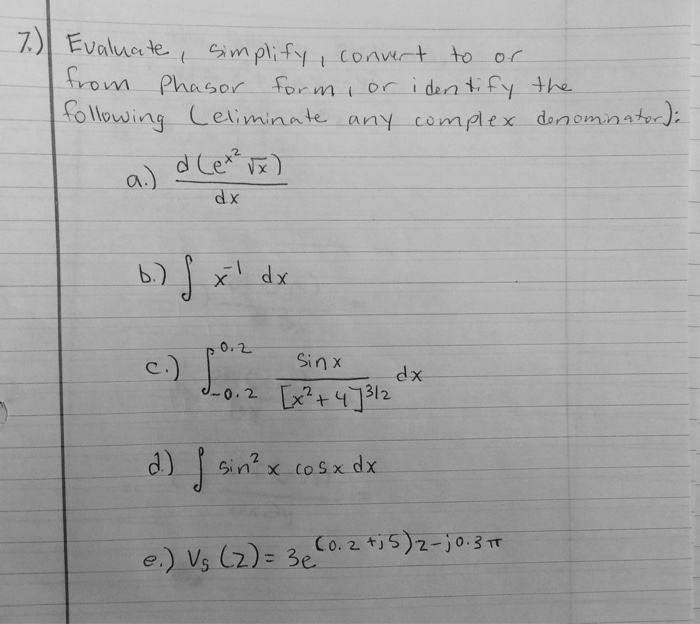 7.) Evaluate, simplify, convert to or
from Phasor form, or identify the
following (eliminate any complex denominator):
a.) d(e^{x^2} √x) / dx
b.) ∫ x^{-1} dx
c.) ∫_{-0.2}^{0.2} sin x / [x^2+4]^{3/2} dx
d.) ∫ sin^2 x cos x dx
e.) V_s(z) = 3e^{(0.2+j5)z-j0.3π}